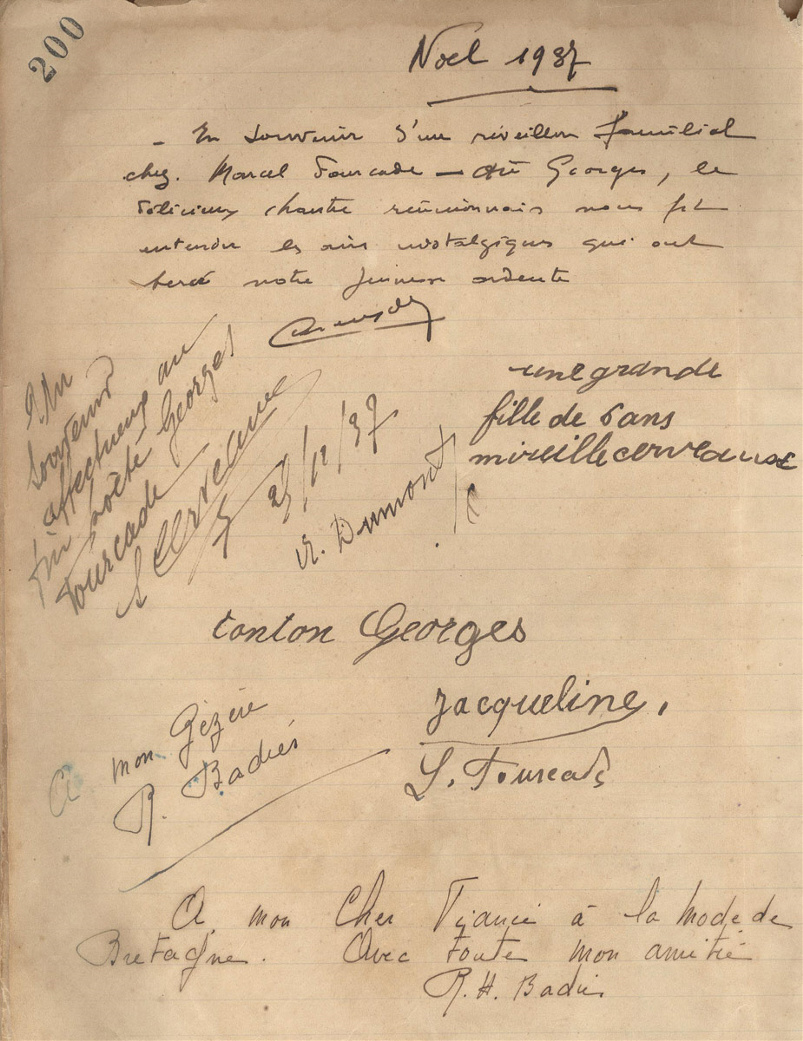 200
Noël 1937
- En souvenir d'un réveillon familial
chez. Marcel Fourcade — où Georges, le
délicieux chantre réunionnais nous fit
entendre les airs nostalgiques qui ont
bercé notre jeunesse ardente
Un
souvenir
affectueux au
fin poète Georges
Fourcade
Cerveaux
25/12/37
R. Dumont
une grande
fille de 6 ans
mireille cerveaux
tonton Georges
Jacqueline.
S. Fourcade
A mon Gézère
R. Badiés
A mon Cher Fiancé à la mode de
Bretagne. Avec toute mon amitié
R. H. Badiés